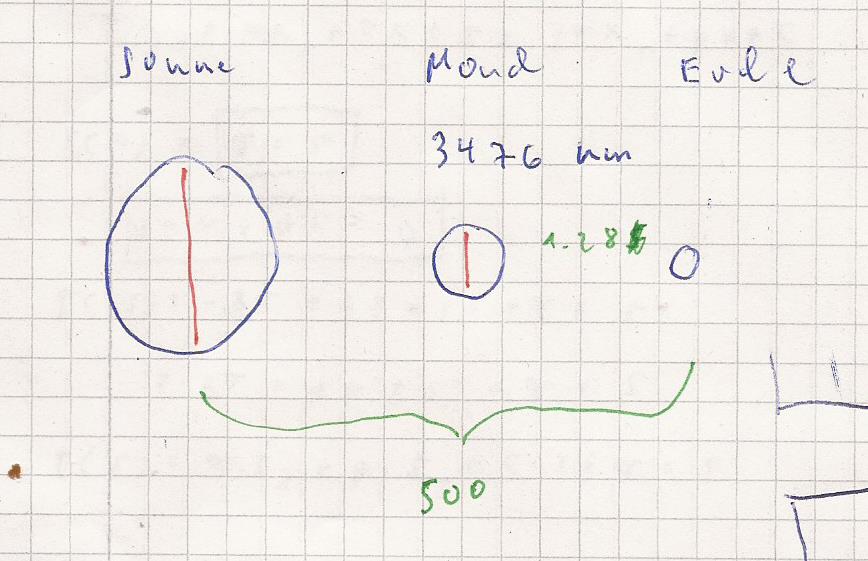 Sonne Mond Erde
3476 km
1.28
500